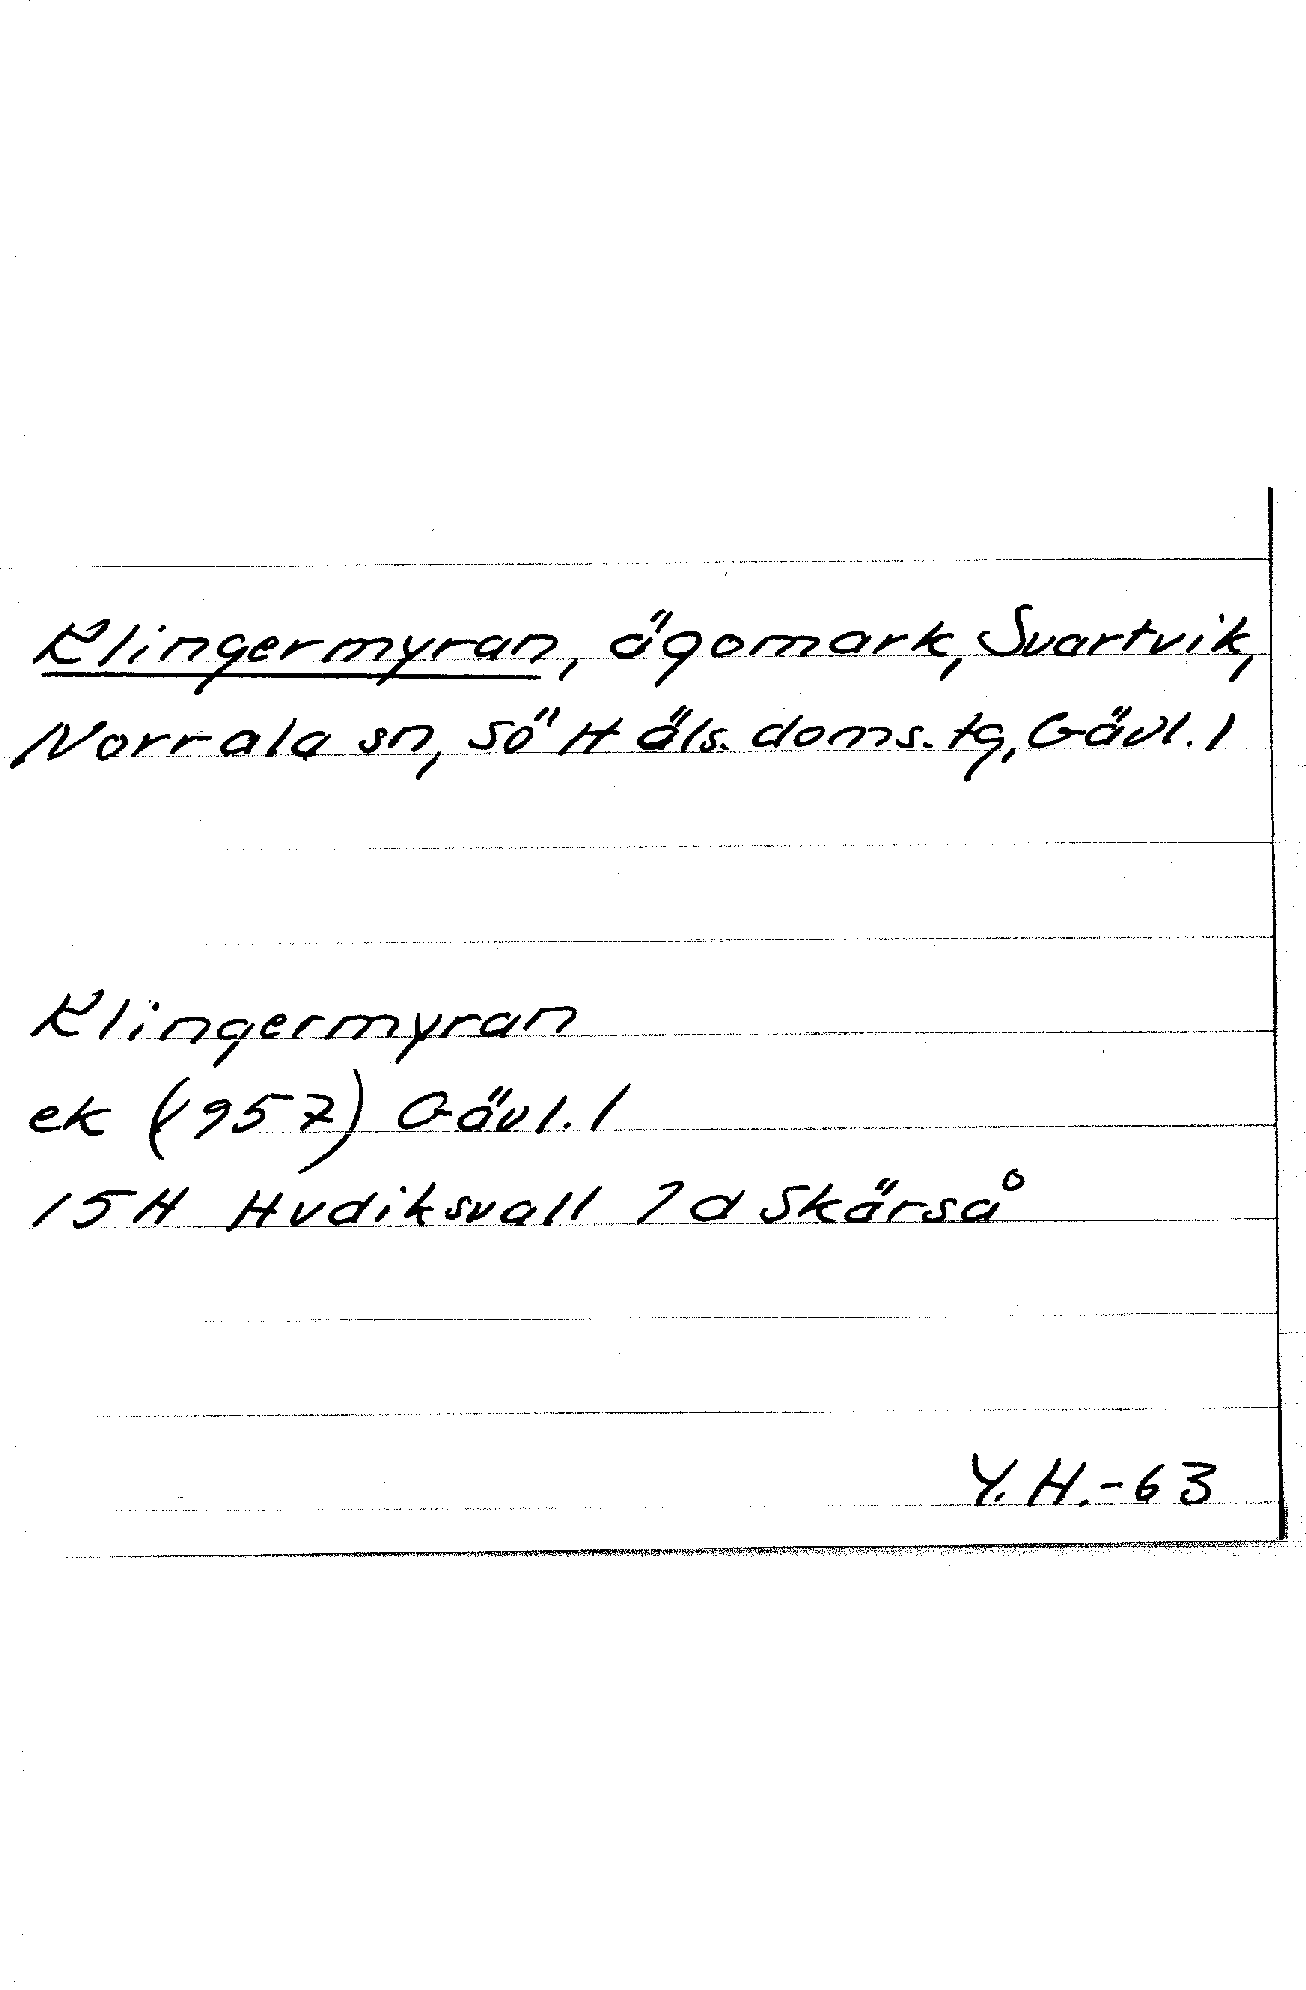 Klingermyran, ägomark, Svartvik,
Norrala sn, Sö Häls. doms. tg, Gävl. l
Klingermyran
ek (1957) Gävl. l
15H Hudiksvall 7d Skärså
Y. H. -63